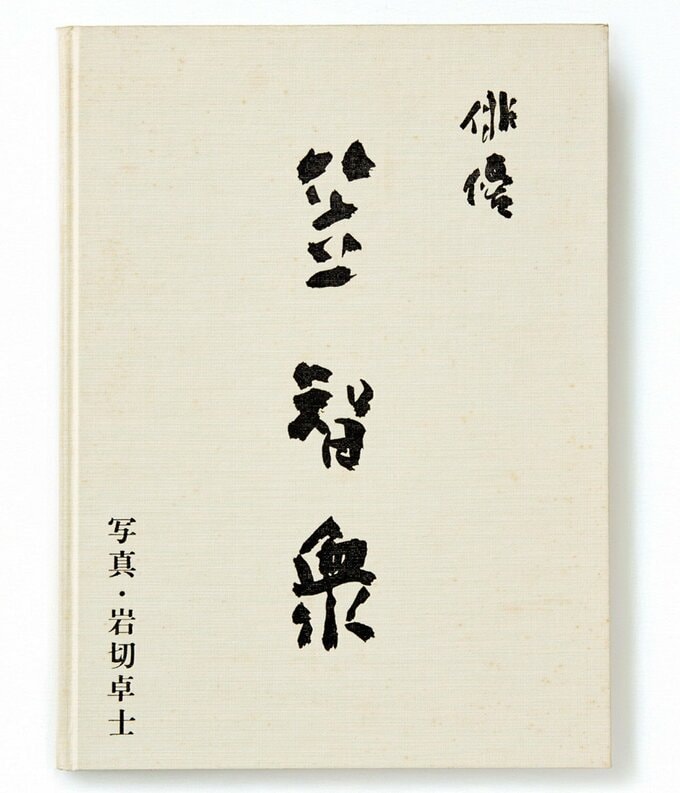 俳僧
笠智衆
写真・岩切卓士